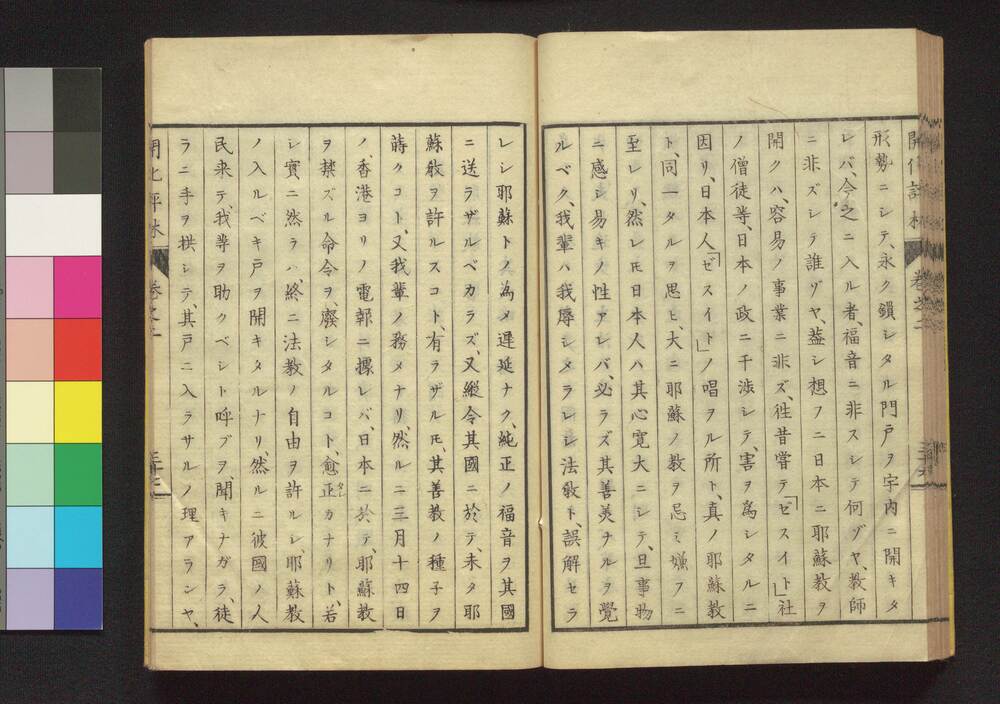 形勢ニシテ、永ク鎖シタル門戸ヲ宇内ニ開キタ
レバ、今之ニ入ル者、福音ニ非スシテ何ゾヤ、教師
ニ非ズシテ誰ゾヤ、蓋シ想フニ日本ニ耶蘇教ヲ
開クハ、容易ノ事業ニ非ズ、徃昔嘗テ「ゼスイト」社
ノ僧徒等、日本ノ政ニ干渉シテ、害ヲ為シタルニ
因リ、日本人「ゼスイト」ノ唱ヲル所ト、真ノ耶蘇教
ト、同一タルヲ思ヒ、大ニ耶蘇ノ教ヲ忌ミ嫌フニ
至レリ、然レ𪜈日本人ハ其心寛大ニシテ、且事物
ニ感シ易キノ性アレバ、必ラズ其善美ナルヲ覺
ルベク、我輩ハ我辱シメラレシ法敎ト、誤解セラ
レシ耶蘇トノ為メ遅延ナク、純正ノ福音ヲ其國
ニ送ラザルベカラズ、又縦令其國ニ於テ、未タ耶
蘇敎ヲ許ルスコト、有ラザル𪜈、其善教ノ種子ヲ
蒔クコト、又我輩ノ務メナリ、然ルニ三月十四日
ノ、香港ヨリノ電報ニ據レバ、日本ニ於テ、耶蘇教
ヲ禁ズル命令ヲ、廢シタルコト、愈正カナリト、若
シ實ニ然ラハ、終ニ法教ノ自由ヲ許ルシ、耶蘇教
ノ入ルベキ戸ヲ開キタルナリ、然ルニ彼國ノ人
民来テ、我等ヲ助クベシト呼ブヲ、聞キナガラ、徒
ラニ手ヲ拱シテ、其戸ニ入ラサルノ理アランヤ、